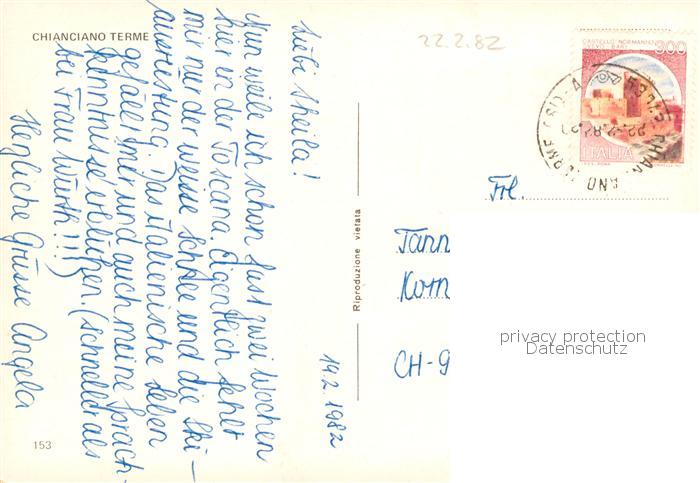 CHIANCIANO TERME
22.2.82
CASTELLO NORMANNO
SVEVO - BARI
300
ITALIA
19.2.1982
Liebi Sheila!
Nun weile ich schon fast zwei Wochen
hier in der Toscana. Eigentlich fehlt
mir nur der weisse Schnee und die Ski-
ausrüstung. Das italienische Leben
gefällt mir und auch meine Sprach-
kenntnisse inklusen. (schneller als
bei Frau Wirth!!!)
Herzliche Grüsse Angela
Riproduzione vietata
Frl.
Tann
Korn
CH-9
privacy protection
Datenschutz
153